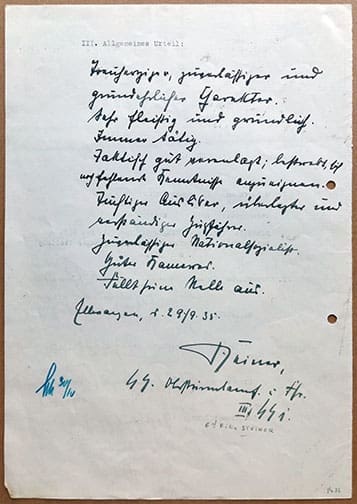 III. Allgemeines Urteil:
Treuherziger, zuverlässiger und
grundehrlicher Charakter.
Sehr fleißig und gründlich.
Immer tätig.
Taktisch gut veranlagt; bestrebt, sich
noch fehlende Kenntnisse anzueignen.
Tüchtiger Ausbilder, überlegter und
verständiger Zugführer.
Zuverlässiger Nationalsozialist.
Guter Kamerad.
Füllt seine Stelle aus.
Ellwangen, d. 29/9. 35.
Steiner,
SS. Obersturmbannf. u. Fhr.
III/SS 1.